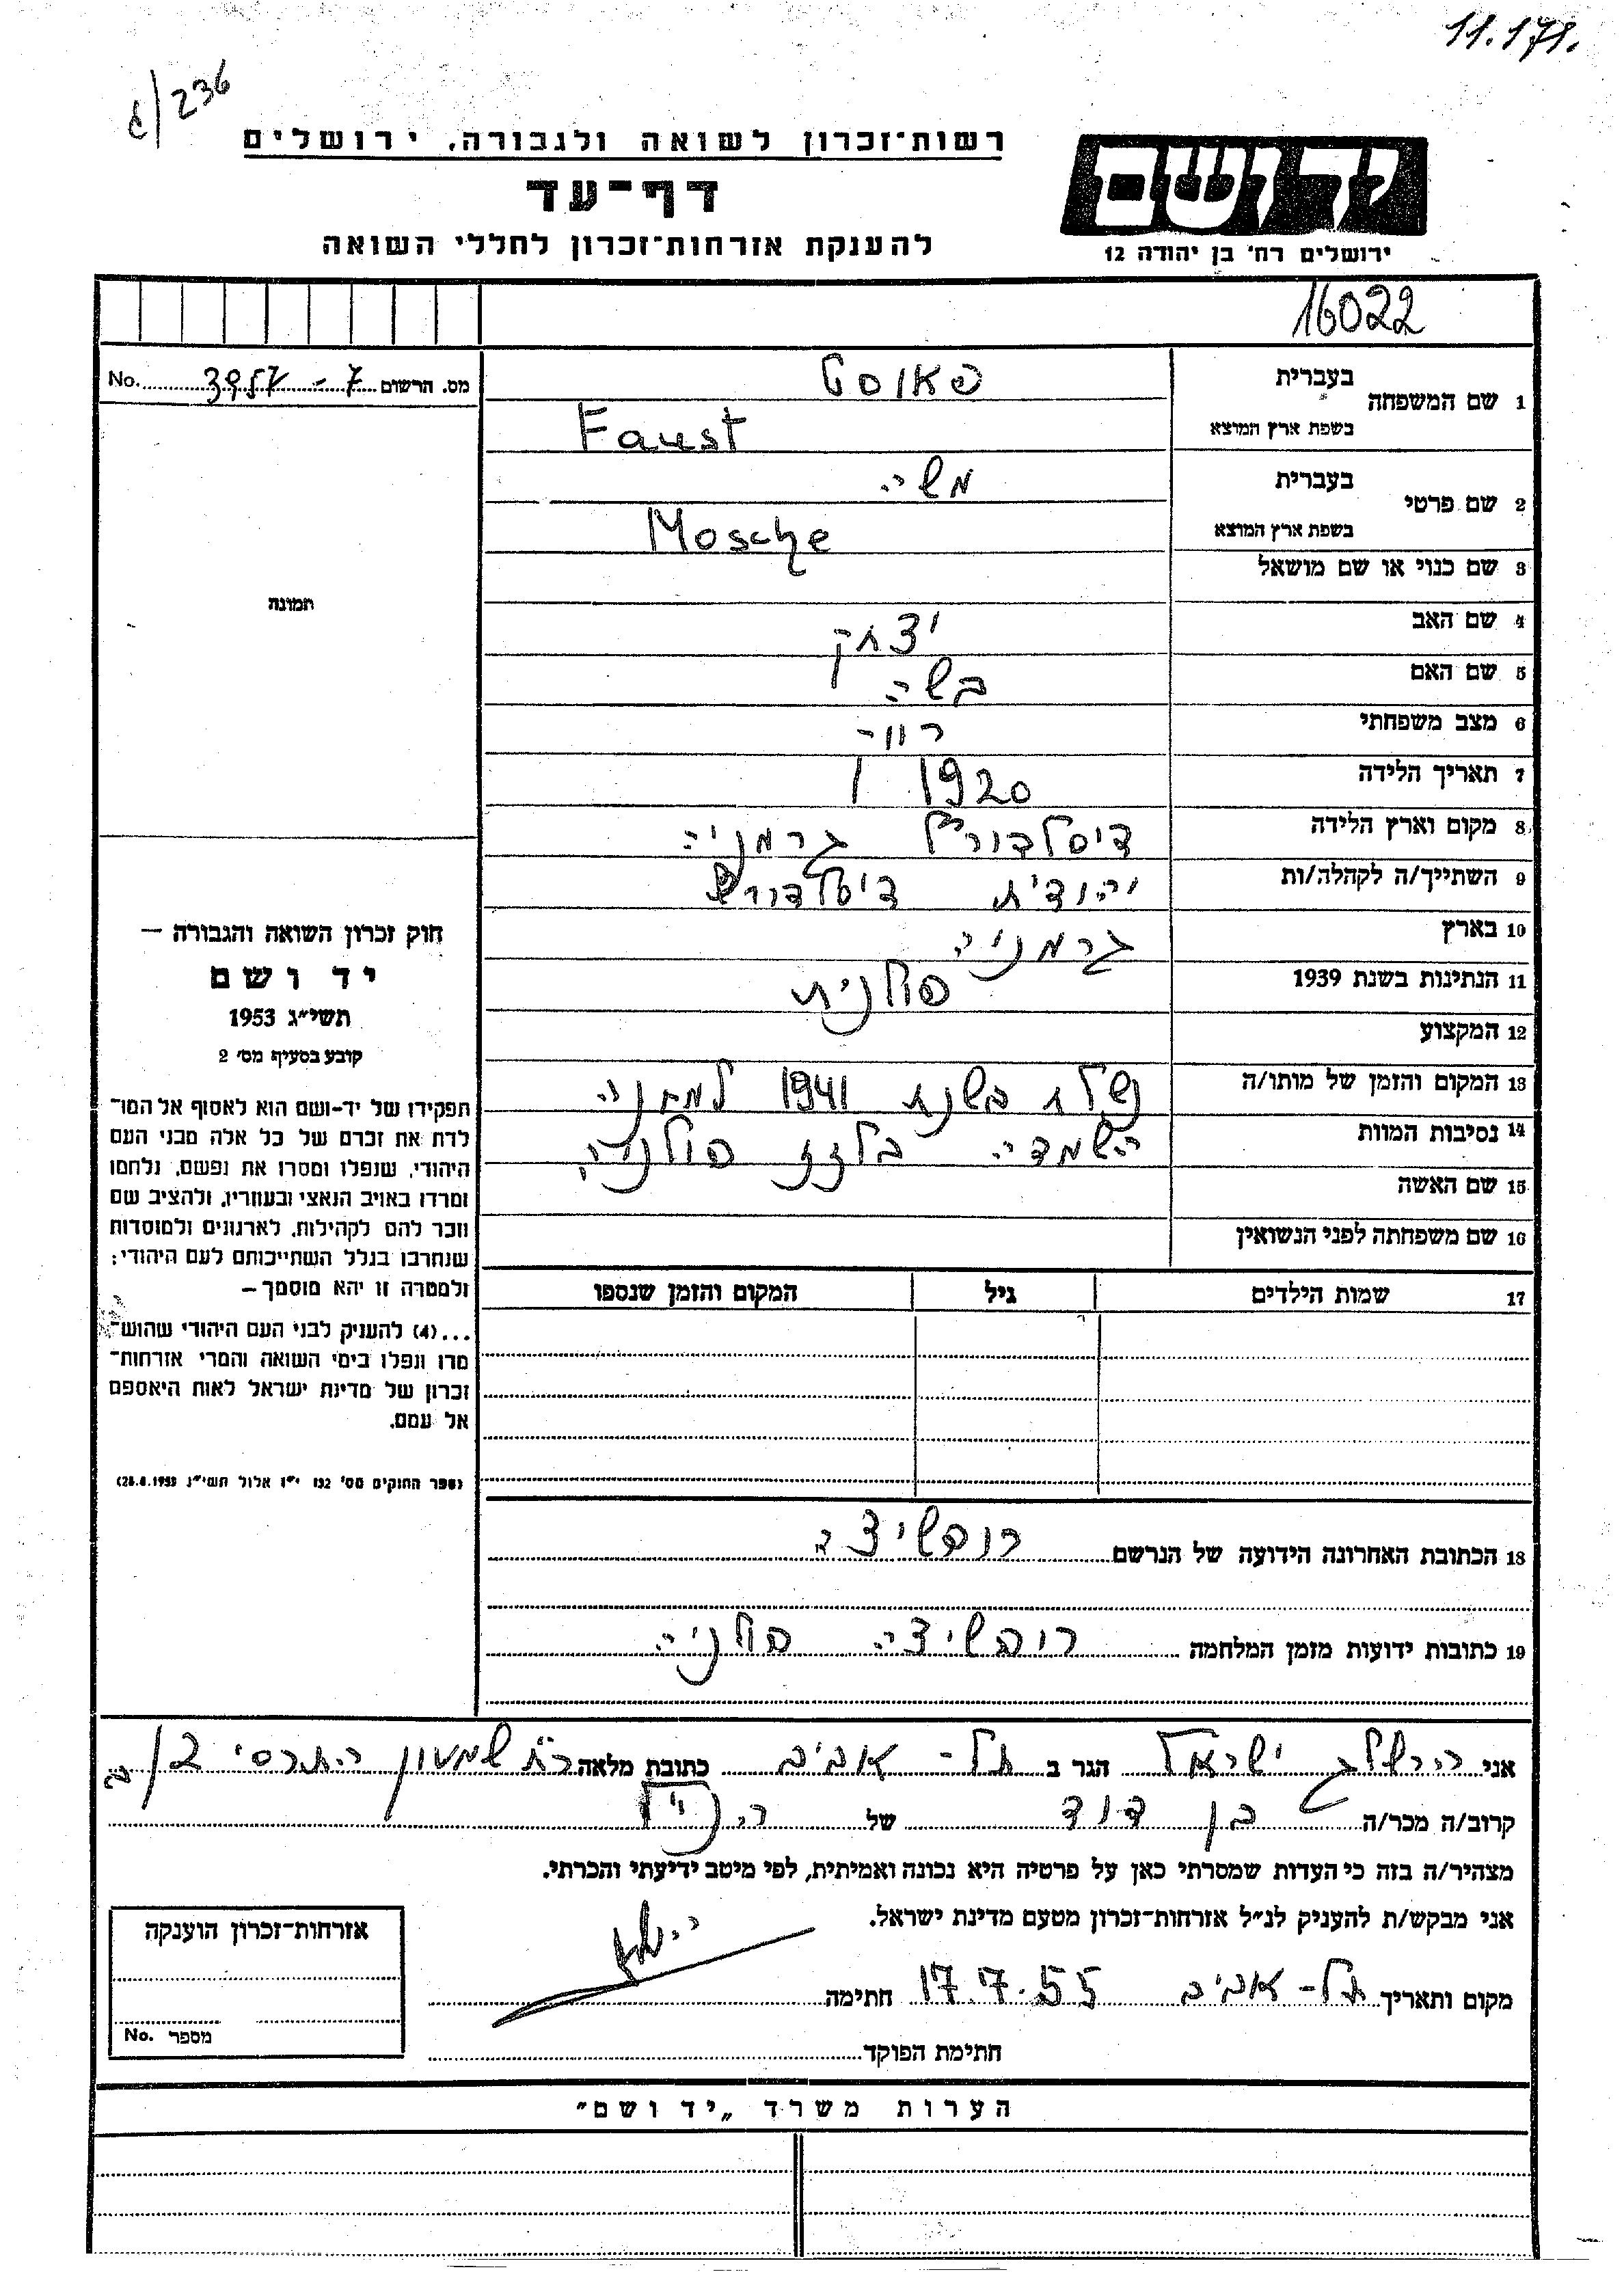 11.178.
236
רשות־זכרון לשואה ולגבורה, ירושלים
ידושם
דף־עד
להענקת אזרחות־זכרון לחללי השואה
ירושלים רח' בן יהודה 12
16022
מס. הרשום No.
1 שם המשפחה
בעברית פאוסט
בשפת ארץ המוצא Faust
2 שם פרטי
בעברית משה
בשפת ארץ המוצא Mosche
3 שם כנוי או שם מושאל
4 שם האב יצחק
5 שם האם בשה
6 מצב משפחתי רווק
7 תאריך הלידה 1920
8 מקום וארץ הלידה דיסלדורף גרמניה
9 השתייך/ה לקהלה/ות יהודית דיסלדורף
10 בארץ גרמניה
11 הנתינות בשנת 1939 פולנית
12 המקצוע
13 המקום והזמן של מותו/ה נשלח בשנת 1941 למחנה
14 נסיבות המוות השמדה בלזץ פולניה
15 שם האשה
16 שם משפחתה לפני הנשואין
17 שמות הילדים גיל המקום והזמן שנספו
תמונה
חוק זכרון השואה והגבורה —
יד ושם
תשי״ג 1953
קובע בסעיף מס׳ 2
תפקידו של יד-ושם הוא לאסוף אל המו־
לדת את זכרם של כל אלה מבני העם
היהודי, שנפלו ומסרו את נפשם, נלחמו
ומרדו באויב הנאצי ובעוזריו, ולהציב שם
וזכר להם לקהילות, לארגונים ולמוסדות
שנחרבו בגלל השתייכותם לעם היהודי:
ולמטרה זו יהא מוסמך —
...(4) להעניק לבני העם היהודי שהוש־
מדו ונפלו בימי השואה והמרי אזרחות־
זכרון של מדינת ישראל לאות היאספם
אל עמם.
(ספר החוקים מס׳ 132 י״ז אלול תשי״ג 28.8.1953)
18 הכתובת האחרונה הידועה של הנרשם רופשיצה
19 כתובות ידועות מזמן המלחמה רופשיצה פולניה
אני הירשלג ישראל הגר ב תל - אביב כתובת מלאה רח' שמעון התרסי 2/ב
קרוב/ה מכר/ה בן דוד של הנ״ל
מצהיר/ה בזה כי העדות שמסרתי כאן על פרטיה היא נכונה ואמיתית, לפי מיטב ידיעתי והכרתי.
אני מבקש/ת להעניק לנ״ל אזרחות־זכרון מטעם מדינת ישראל.
מקום ותאריך תל - אביב 17.7.55 חתימה
חתימת הפוקד
אזרחות־זכרון הוענקה
מספר No.
הערות משרד „יד ושם״